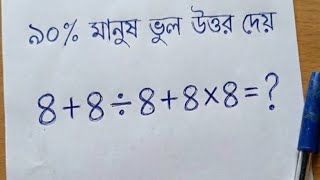 ৯০% মানুষ ভুল উত্তর দেয়
8+8÷8+8×8=?